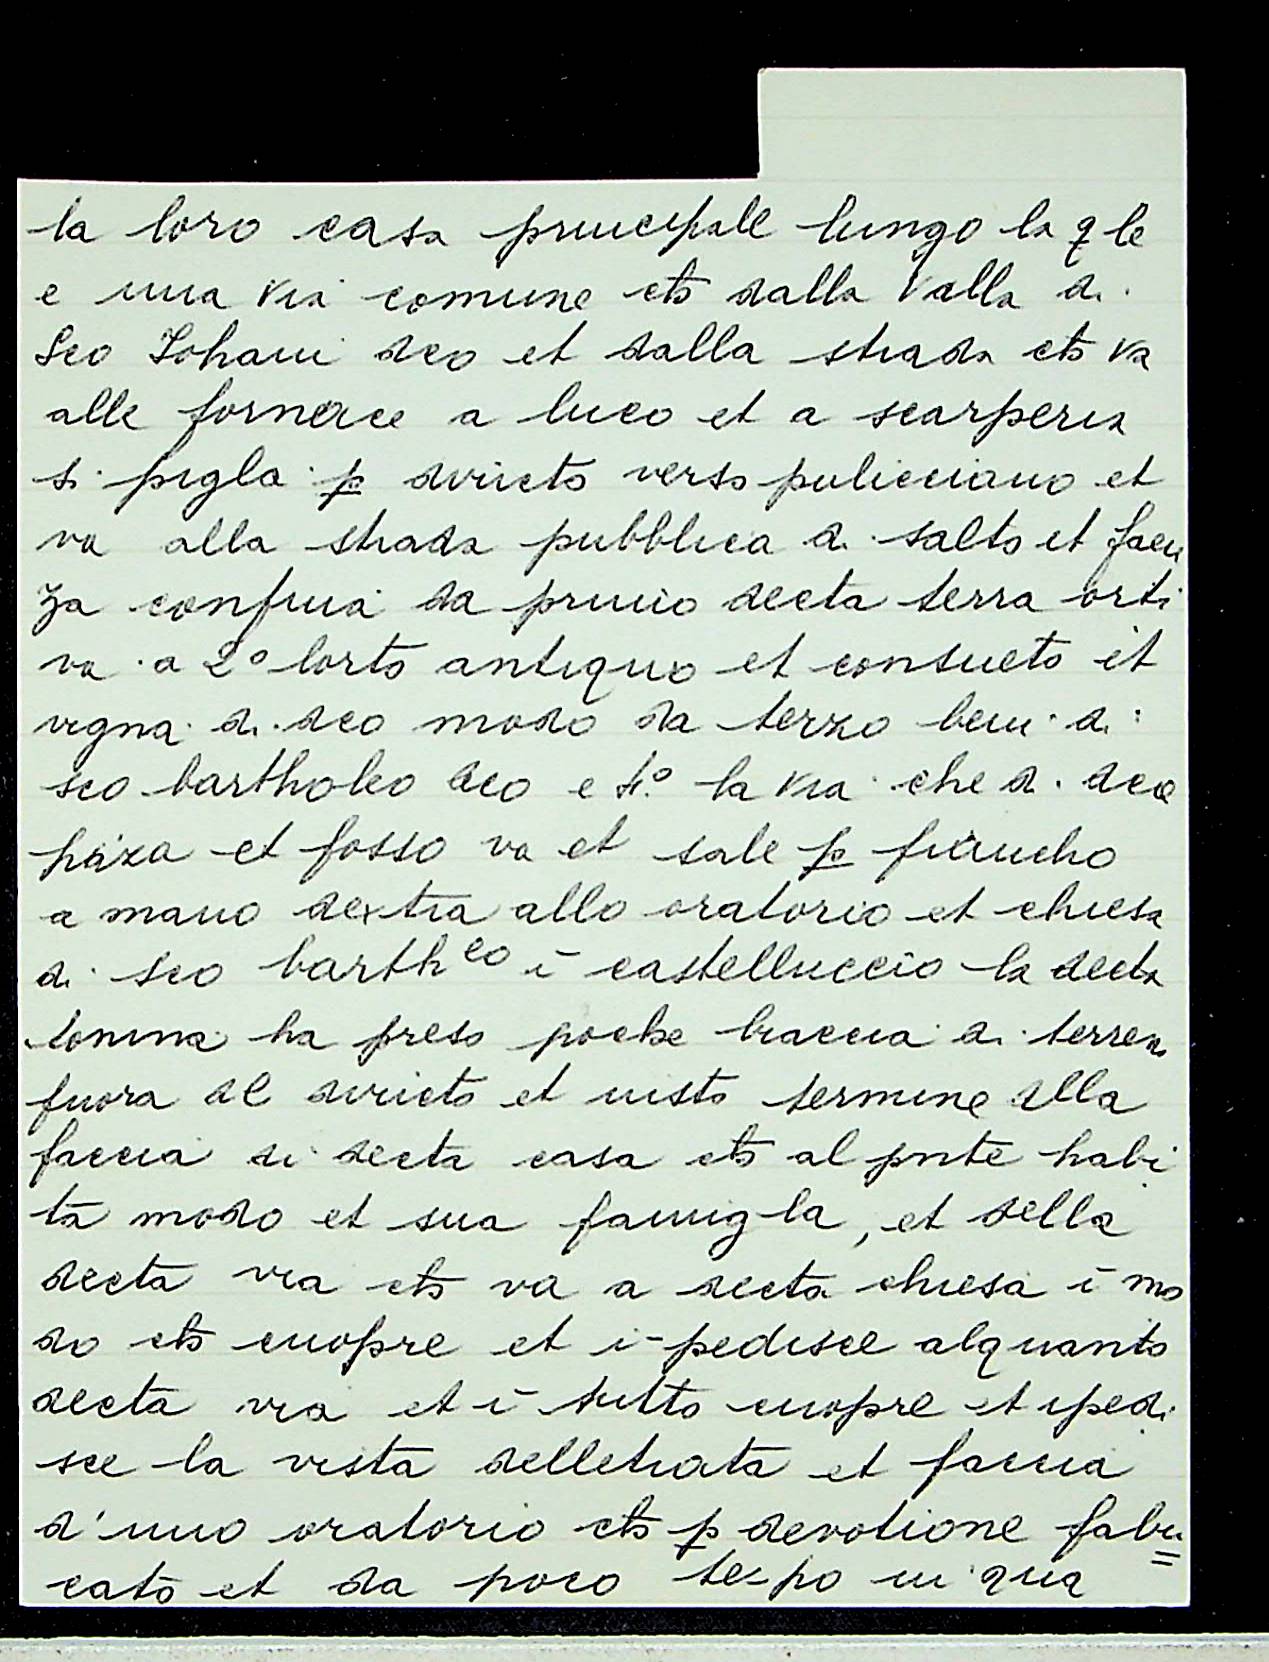 la loro casa principale lungo la qle
e una via comune ch dalla Valla di
Sco Johani dco et dalla strada ch va
alle fornace a luco et a scarperia
si pigla p diricto verso pulicciano et
va alla strada pubblica di salto et faen
za confina da primo decta terra orti
va a 2º lorto antiquo et consueto et
vigna di dco modo da terzo beni di
sco bartholeo dco e 4.º la via che di dca
piaza et fosso va et sale p fiancho
a mano dextra allo oratorio et chiesa
di sco barthᵉᵒ ī castelluccio la decta
tonina ha preso poche braccia di terreno
fuora del diricto et iusto termine alla
faccia di decta casa ch al pnte habi
ta modo et sua famigla, et della
decta via ch va a decta chiesa ī mo
do ch cuopre et i-pedisce alquanto
decta via et ī tutto cuopre et ipedi
sce la vista dellētrata et faccia
d'uno oratorio ch p devotione fabri=
cato et da poco te-po in qua